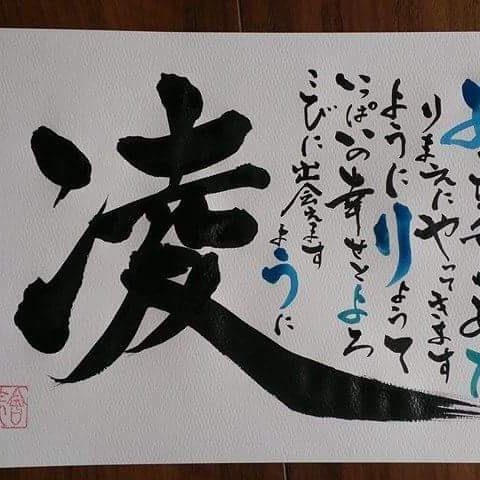 あた
りまえにやってきます
ようにりょうて
いっぱいの幸せとよろ
こびに出会えます
ように
凌